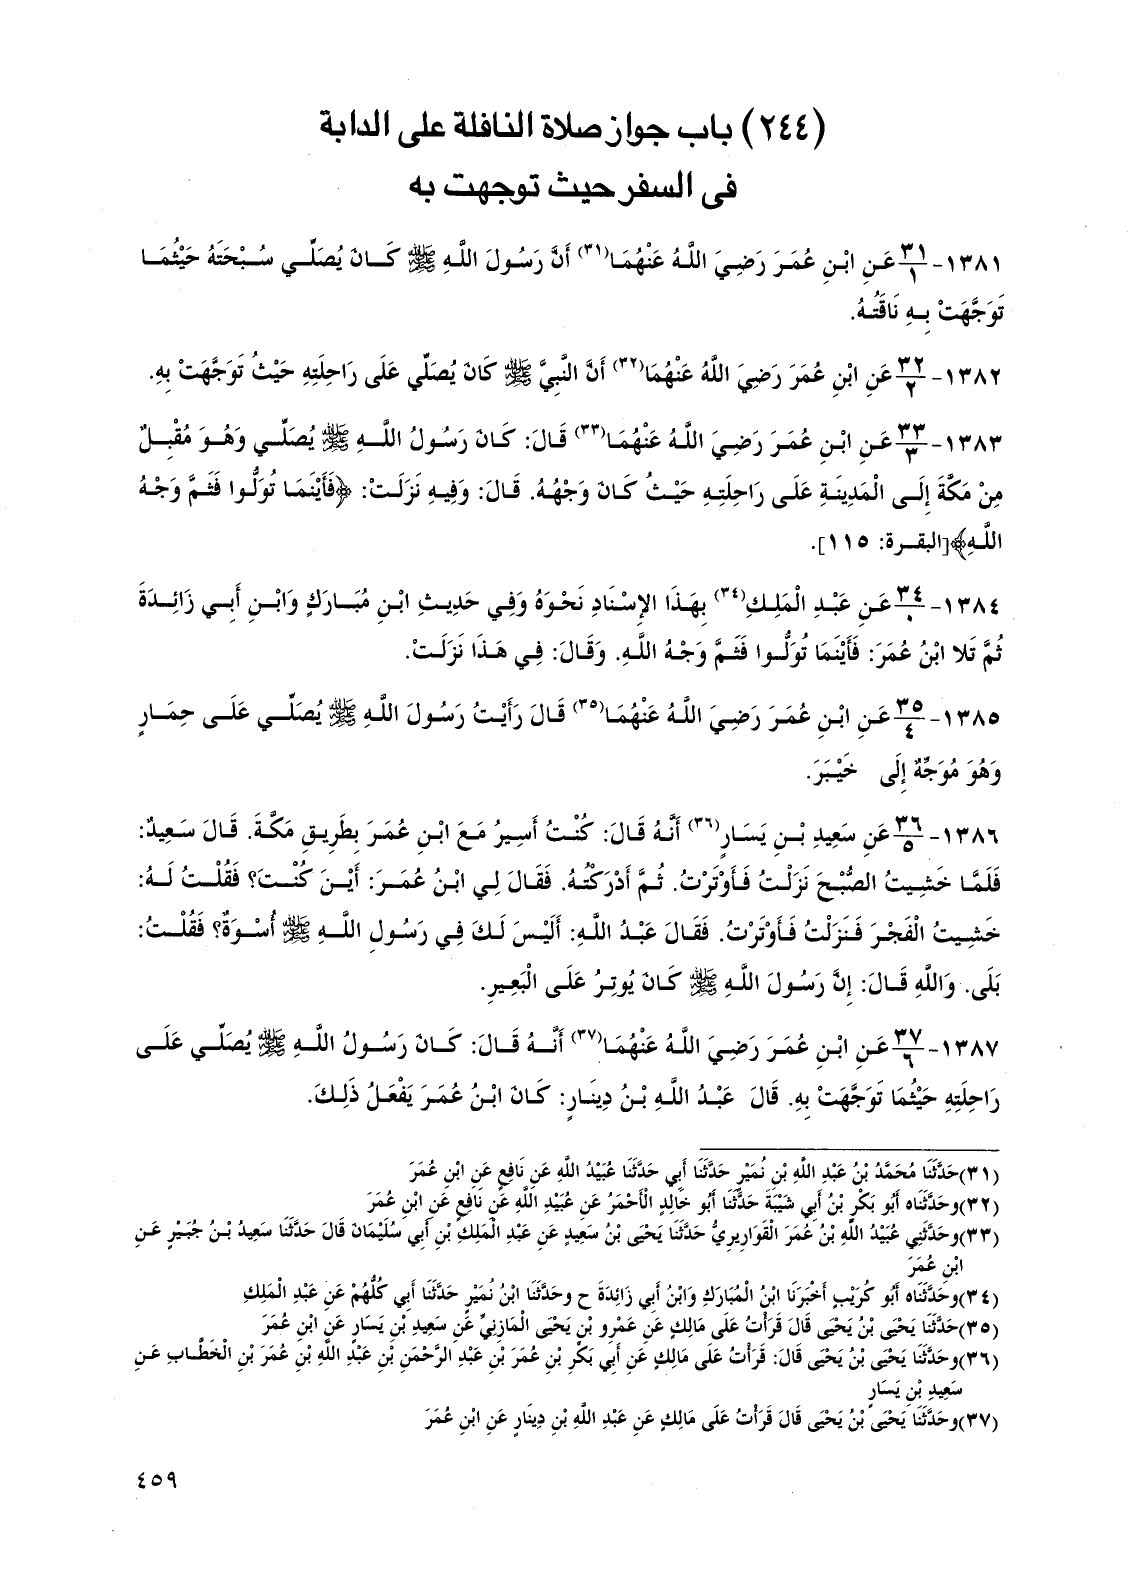 (٢٤٤) باب جواز صلاة النافلة على الدابة
فى السفر حيث توجهت به
١٣٨١- ٣١/١ عَنِ ابْنِ عُمَرَ رَضِيَ اللَّهُ عَنْهُمَا(٣١) أَنَّ رَسُولَ اللَّهِ ﷺ كَانَ يُصَلِّي سُبْحَتَهُ حَيْثُمَا
تَوَجَّهَتْ بِهِ نَاقَتُهُ.
١٣٨٢- ٣٢/٢ عَنِ ابْنِ عُمَرَ رَضِيَ اللَّهُ عَنْهُمَا(٣٢) أَنَّ النَّبِيَّ ﷺ كَانَ يُصَلِّي عَلَى رَاحِلَتِهِ حَيْثُ تَوَجَّهَتْ بِهِ.
١٣٨٣- ٣٣/٣ عَنِ ابْنِ عُمَرَ رَضِيَ اللَّهُ عَنْهُمَا(٣٣) قَالَ: كَانَ رَسُولُ اللَّهِ ﷺ يُصَلِّي وَهُوَ مُقْبِلٌ
مِنْ مَكَّةَ إِلَى الْمَدِينَةِ عَلَى رَاحِلَتِهِ حَيْثُ كَانَ وَجْهُهُ. قَالَ: وَفِيهِ نَزَلَتْ: ﴿فَأَيْنَمَا تُوَلُّوا فَثَمَّ وَجْهُ
اللَّهِ﴾[البقرة: ١١٥].
١٣٨٤- ٣٤/٠ عَنِ عَبْدِ الْمَلِكِ(٣٤) بِهَذَا الإِسْنَادِ نَحْوَهُ وَفِي حَدِيثِ ابْنِ مُبَارَكٍ وَابْنِ أَبِي زَائِدَةَ
ثُمَّ تَلا ابْنُ عُمَرَ: فَأَيْنَمَا تُوَلُّوا فَثَمَّ وَجْهُ اللَّهِ. وَقَالَ: فِي هَذَا نَزَلَتْ.
١٣٨٥- ٣٥/٤ عَنِ ابْنِ عُمَرَ رَضِيَ اللَّهُ عَنْهُمَا(٣٥) قَالَ رَأَيْتُ رَسُولَ اللَّهِ ﷺ يُصَلِّي عَلَى حِمَارٍ
وَهُوَ مُوَجِّهٌ إِلَى خَيْبَرَ.
١٣٨٦- ٣٦/٥ عَن سَعِيدِ بْنِ يَسَارٍ(٣٦) أَنَّهُ قَالَ: كُنْتُ أَسِيرُ مَعَ ابْنِ عُمَرَ بِطَرِيقِ مَكَّةَ. قَالَ سَعِيدٌ:
فَلَمَّا خَشِيتُ الصُّبْحَ نَزَلْتُ فَأَوْتَرْتُ. ثُمَّ أَدْرَكْتُهُ. فَقَالَ لِي ابْنُ عُمَرَ: أَيْنَ كُنْتَ؟ فَقُلْتُ لَهُ:
خَشِيتُ الْفَجْرَ فَنَزَلْتُ فَأَوْتَرْتُ. فَقَالَ عَبْدُ اللَّهِ: أَلَيْسَ لَكَ فِي رَسُولِ اللَّهِ ﷺ أُسْوَةٌ؟ فَقُلْتُ:
بَلَى. وَاللَّهِ قَالَ: إِنَّ رَسُولَ اللَّهِ ﷺ كَانَ يُوتِرُ عَلَى الْبَعِيرِ.
١٣٨٧- ٣٧/٦ عَنِ ابْنِ عُمَرَ رَضِيَ اللَّهُ عَنْهُمَا(٣٧) أَنَّهُ قَالَ: كَانَ رَسُولُ اللَّهِ ﷺ يُصَلِّي عَلَى
رَاحِلَتِهِ حَيْثُمَا تَوَجَّهَتْ بِهِ. قَالَ عَبْدُ اللَّهِ بْنُ دِينَارٍ: كَانَ ابْنُ عُمَرَ يَفْعَلُ ذَلِكَ.
(٣١)حَدَّثَنَا مُحَمَّدُ بْنُ عَبْدِ اللَّهِ بْنِ نُمَيْرٍ حَدَّثَنَا أَبِي حَدَّثَنَا عُبَيْدُ اللَّهِ عَنِ نَافِعٍ عَنِ ابْنِ عُمَرَ
(٣٢)وحَدَّثَنَاه أَبُو بَكْرِ بْنُ أَبِي شَيْبَةَ حَدَّثَنَا أَبُو خَالِدٍ الْأَحْمَرُ عَن عُبَيْدِ اللَّهِ عَنِ نَافِعٍ عَنِ ابْنِ عُمَرَ
(٣٣)وحَدَّثَنِي عُبَيْدُ اللَّهِ بْنُ عُمَرَ الْقَوَارِيرِيُّ حَدَّثَنَا يَحْيَى بْنُ سَعِيدٍ عَنِ عَبْدِ الْمَلِكِ بْنِ أَبِي سُلَيْمَانَ قَالَ حَدَّثَنَا سَعِيدُ بْنُ جُبَيْرٍ عَنِ
ابْنِ عُمَرَ
(٣٤)وحَدَّثَنَاه أَبُو كُرَيْبٍ أَخْبَرَنَا ابْنُ الْمُبَارَكِ وَابْنُ أَبِي زَائِدَةَ ح وحَدَّثَنَا ابْنُ نُمَيْرٍ حَدَّثَنَا أَبِي كُلُّهُمْ عَنِ عَبْدِ الْمَلِكِ
(٣٥)حَدَّثَنَا يَحْيَى بْنُ يَحْيَى قَالَ قَرَأْتُ عَلَى مَالِكٍ عَنِ عَمْرِو بْنِ يَحْيَى الْمَازِنِيِّ عَنِ سَعِيدِ بْنِ يَسَارٍ عَنِ ابْنِ عُمَرَ
(٣٦)وحَدَّثَنَا يَحْيَى بْنُ يَحْيَى قَالَ: قَرَأْتُ عَلَى مَالِكٍ عَن أَبِي بَكْرِ بْنِ عُمَرَ بْنِ عَبْدِ الرَّحْمَنِ بْنِ عَبْدِ اللَّهِ بْنِ عُمَرَ بْنِ الْخَطَّابِ عَنِ
سَعِيدِ بْنِ يَسَارٍ
(٣٧)وحَدَّثَنَا يَحْيَى بْنُ يَحْيَى قَالَ قَرَأْتُ عَلَى مَالِكٍ عَنِ عَبْدِ اللَّهِ بْنِ دِينَارٍ عَنِ ابْنِ عُمَرَ
٤٥٩